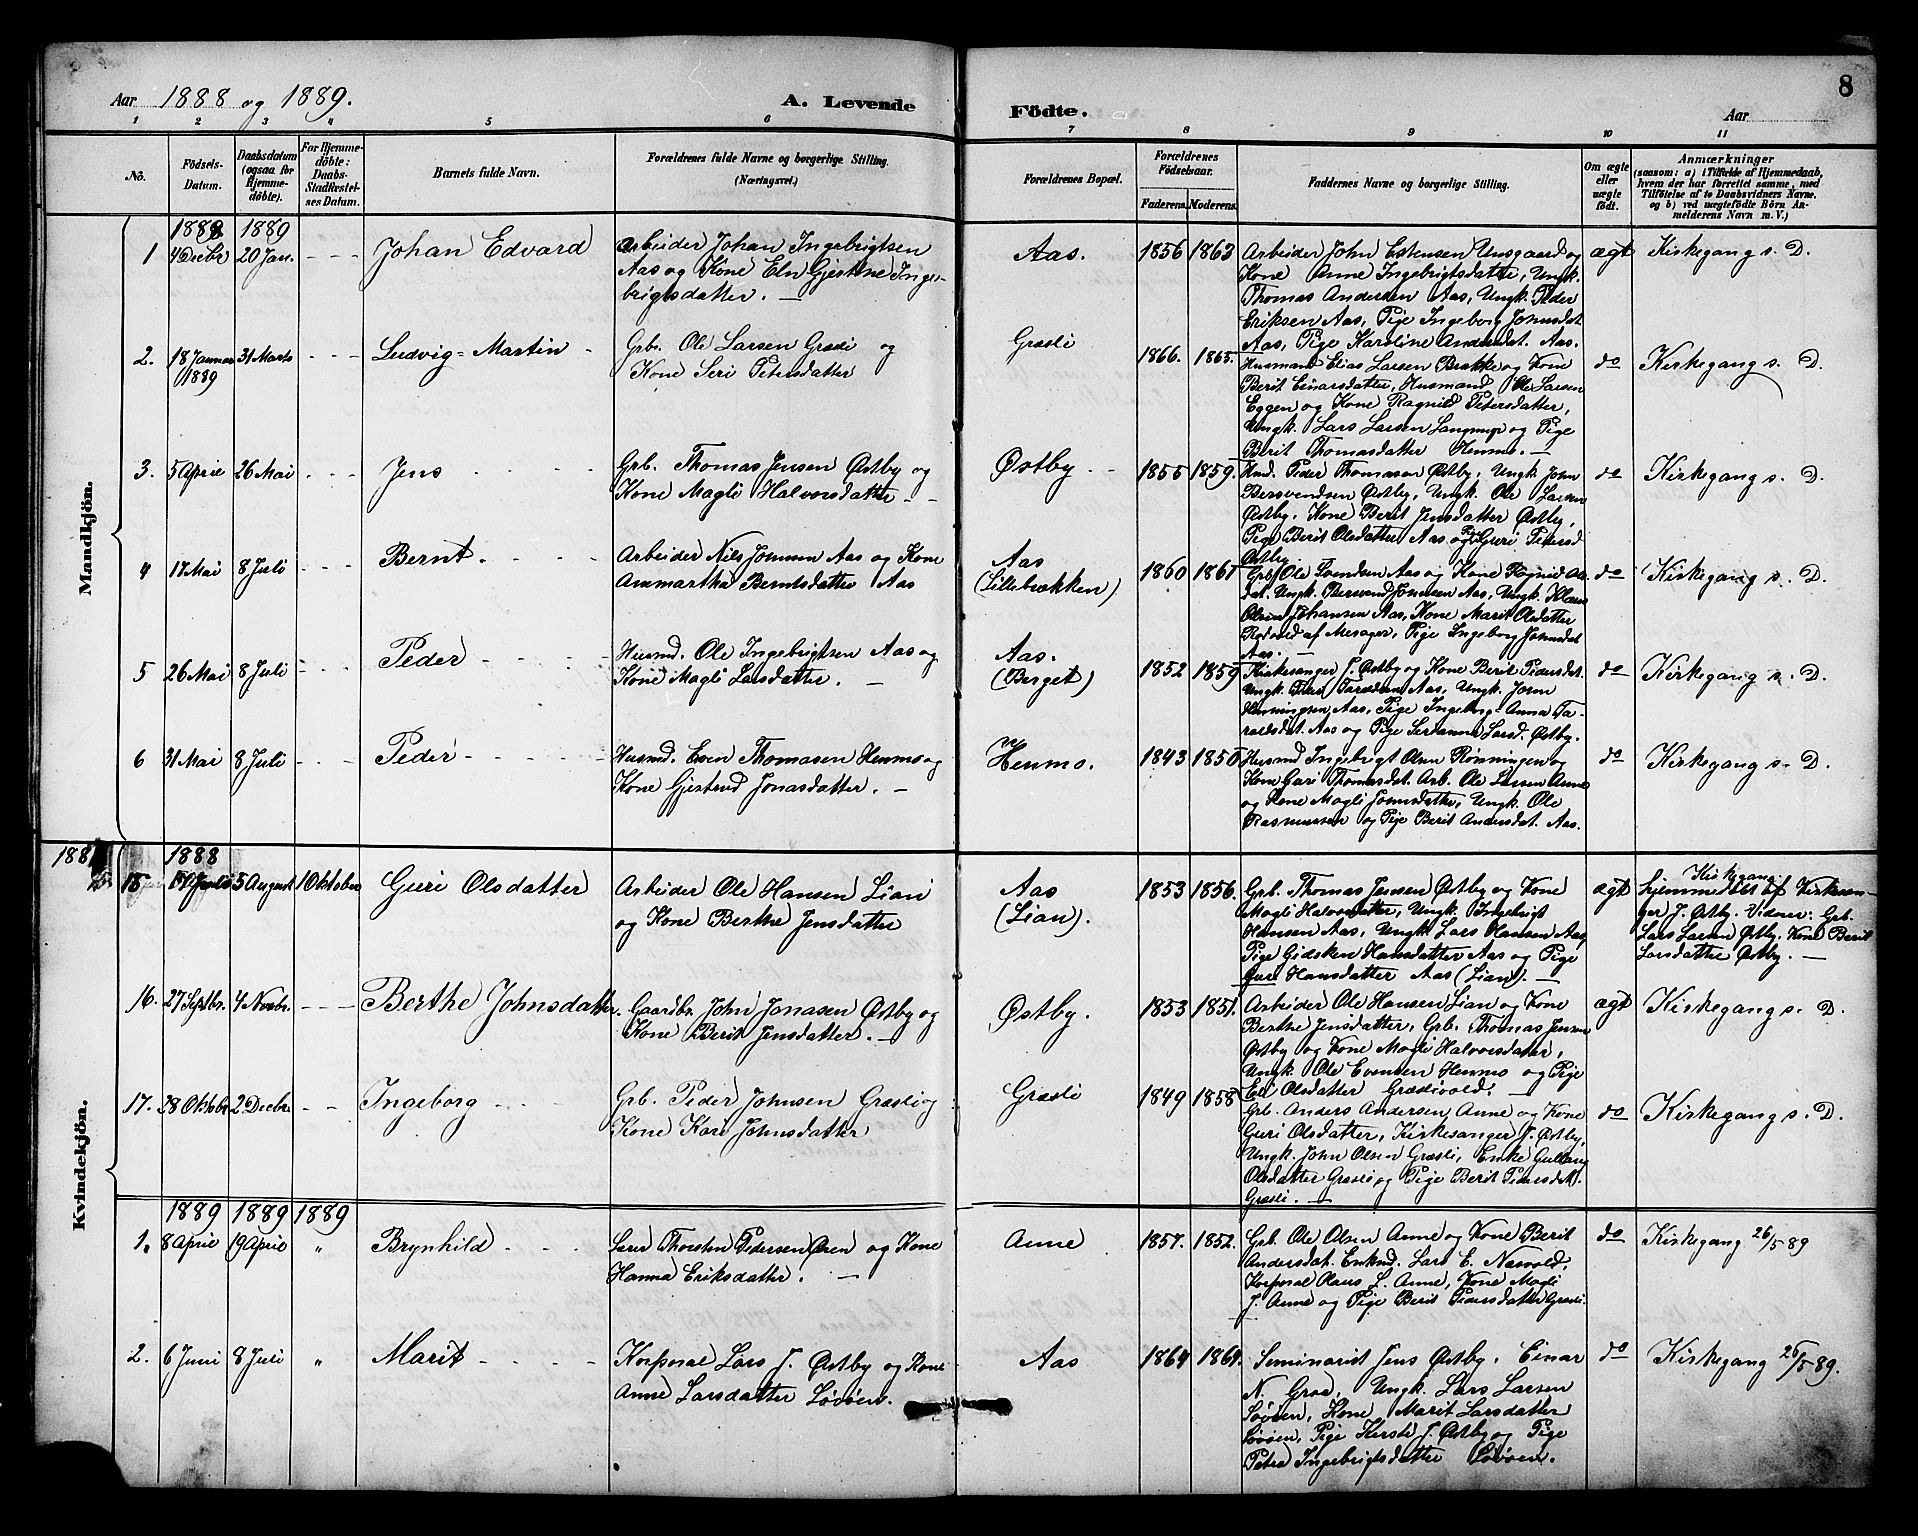 Aar 1888 og 1889.
A. Levende
Födte.
Aar
8
1 2 3 4 5 6 7 8 9 10 11
No.
Födsels-Datum.
Daabsdatum (ogsaa for Hjemmedöbte).
For Hjemmedöbte: Daabs-Stadfæstelses Datum.
Barnets fulde Navn.
Forældrenes fulde Navne og borgerlige Stilling.
(Næringsvei.)
Forældrenes Bopæl.
Forældrenes Födselsaar.
Faderens. Moderens.
Faddernes Navne og borgerlige Stilling.
Om ægte eller uægte födt.
Anmærkninger
(saasom: a) i Tilfælde af Hjemmedaab,
hvem der har forrettet samme, med
Tilföielse af to Daabsvidners Navne,
og b) ved uægtefödte Börn An-
melderens Navn m. V.)
Mandkjön.
1888 1889
1 4 Decbr 20 Jan. Johan Edvard
Arbeider Johan Ingebrigtsen
Aas og Kone Eln Gjestine Inge-
brigtsdatter. —
Aas. 1856 1863
Arbeider John Estensen Unsgaard og
Kone Anne Ingebrigtsdatter, Ungk.
Thomas Andersen Aas, Ungk. Peder
Eriksen Aas, Pige Ingeborg Johnsdat.
Aas, Pige Karoline Andersdat. Aas.
ægt Kirkegang s. D.
2. 18 Januar 1889 31 Marts Ludvig-Martin
Grb. Ole Larsen Græsli og
Kone Seri Petersdatter
Græsli 1866. 1865.
Husmand Elias Larsen Brække og Kone
Berit Einarsdatter, Husmand Ole Larsen
Eggen og Kone Ragnild Petersdatter,
Ungk. Lars Larsen og Pige
Berit Thomasdatter Henmo. —
do Kirkegang s. D.
3. 5 April 26 Mai Jens
Grb. Thomas Jensen Østby og
Kone Magli Halvorsdatter —
Østby 1855 1859.
Peder Thomasen Østby, Ungk. John
Bersvendsen Østby, Ungk. Ole Larsen
Østby, Kone Berit Jensdatter Østby,
Pige Berit Olsdatter Aas og Pige Guri Petersd.
Østby
do Kirkegang s. D.
4 17 Mai 8 Juli Bernt.
Arbeider Nils Johnsen Aas og Kone
Annmartha Berntsdatter Aas
Aas
(Lillebækken) 1860 1861
Grb. Ole Svendsen Aas og Kone Ragnid Ols-
dat. Ungk. Bersvend Jonsen Aas, Ungk.
Johansen Aas, Kone Marit Olsdatter
af Meraker, Pige Ingeborg Johnsdat.
Aas. —
do Kirkegang s. D.
5 26 Mai 8 Juli Peder
Husmd. Ole Ingebrigtsen Aas og
Kone Magli Larsdatter. —
Aas.
(Berget) 1852 1859
Kirkesanger J. Østby og Kone Berit Pedersdat.
Ungk. Aas, Ungk. John
Henningsen Aas, Pige Ingeborg-Anna Ta-
raldsdat. Aas og Pige Larsd. Østby.
do Kirkegang s. D.
6 31 Mai 8 Juli Peder
Husmd. Even Thomasen Henmo og
Kone Gjertrud Jonasdatter. —
Henmo. 1843 1850
Husmd Ingebrigt Olsen Rønningen og
Kone Guri Thomasdat. Arb. Ole Larsen Anne
og Kone Magli Johnsdatter, Ungk. Ole
Rasmussen og Pige Berit Andersdat. Aas.
do Kirkegang s. D.
Kvindekjön.
1888
15 Juli 5 August 1 Oktober Guri Olsdatter
Arbeider Ole Hansen Lian
og Kone Berthe Jensdatter
Aas
(Lian). 1853 1856.
Grb. Thomas Jensen Østby og Kone
Magli Halvorsdatter, Ungk. Ingebrigt
Hansen Aas, Ungk. Lars Hansen Aas,
Pige Gidsken Hansdatter Aas og Pige
Guri Hansdatter Aas (Lian). —
ægt Kirkegang
Hjemmedøbt af Kirkesan-
ger J. Østby. Vidner: Grb.
Lars Larsen Østby. Kone Berit
Larsdatter Østby. —
16. 27 Septbr. 4 Novbr. Berthe Johnsdatter.
Gaardbr. John Jonasen Østby og
Kone Berit Jensdatter. —
Østby. 1853 1851.
Arbeider Ole Hansen Lian og Kone
Berthe Jensdatter, Grb. Thomas Jensen
Østby og Kone Magli Halvorsdatter,
Ungk. Ole Evensen Henmo og Pige
Eli Olsdatter Græslivold. —
ægt Kirkegang s. D.
17. 28 Oktobr 2 Decbr. Ingeborg
Grb. Peder Johnsen Græsli og
Kone Kari Johnsdatter
Græsli 1849 1858
Grb. Anders Andersen Anne og Kone
Guri Olsdatter, Kirkesanger J. Østby,
Ungk. John Olsen Græsli, Enke Gullaug
Olsdatter Græsli og Pige Berit Pedersdat.
Græsli. —
do Kirkegang s. D.
1889 1889 1889
1. 8 April 19 April " Brynhild
Thorsten Pedersen Øren og Kone
Hanna Eriksdatter. —
Anne 1857. 1852.
Grb. Ole Olsen Anne og Kone Berit
Andersdat. Enkmd. Lars E. Næsvold,
Korporal Claus L. Anne, Kone Magli
J. Anne og Pige Berit Pedersdatter Græsli.
do Kirkegang 26/5 89
2. 6 Juni 8 Juli " Marit
Korporal Lars J. Østby og Kone
Anne Larsdatter Løvøen.
Aas 1864 1864.
Seminarist Jens Østby, Einar
N. Graa, Ungk. Lars Larsen
Løvøen, Kone Marit Larsdatter
Løvøen, Pige Kirsti J. Østby og Pige
Petra Ingebrigtsdatter Løvøen.
do Kirkegang 26/5 89.